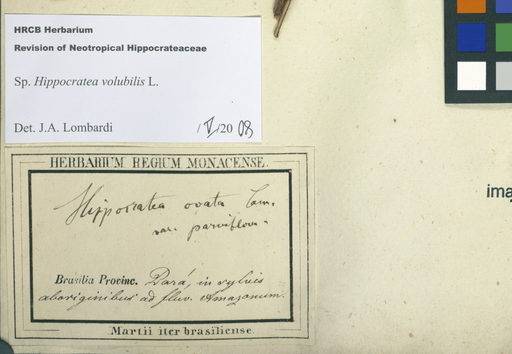 HRCB Herbarium
Revision of Neotropical Hippocrateaceae
Sp. Hippocratea volubilis L.
Det. J.A. Lombardi / V /20 08
HERBARIUM REGIUM MONACENSE.
Hippocratea ovata Lam.
var. parviflora.
Brasilia Provinc. Pará, in sylvis
aboriginibus ad fluv. Amazonum.
Martii iter brasiliense.
ima